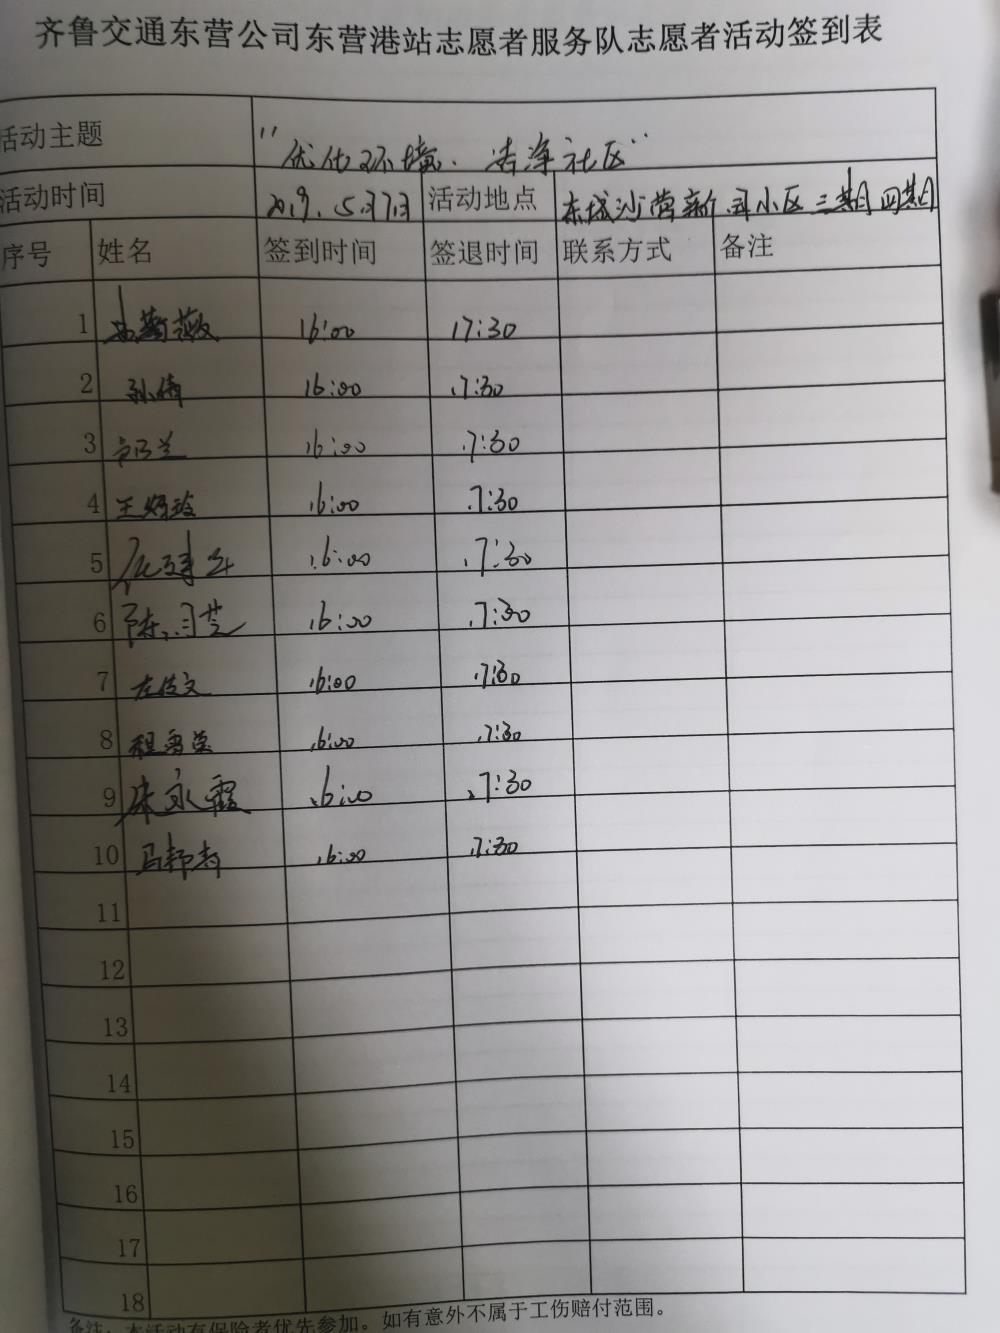 齐鲁交通东营公司东营港站志愿者服务队志愿者活动签到表
活动主题 "优化环境、洁净社区"
活动时间 2019.5月7日 活动地点 东城沙营新 小区三期四期
序号 姓名 签到时间 签退时间 联系方式 备注
1 16:00 17:30
2 孙倩 16:00 17:30
3 16:00 17:30
4 王 玲 16:00 17:30
5 16:00 17:30
6 陈 芝 16:00 17:30
7 左俊文 16:00 17:30
8 程 16:00 17:30
9 朱永霞 16:00 17:30
10 马 16:00 17:30
11
12
13
14
15
16
17
18
备注:本活动有保险者优先参加。如有意外不属于工伤赔付范围。